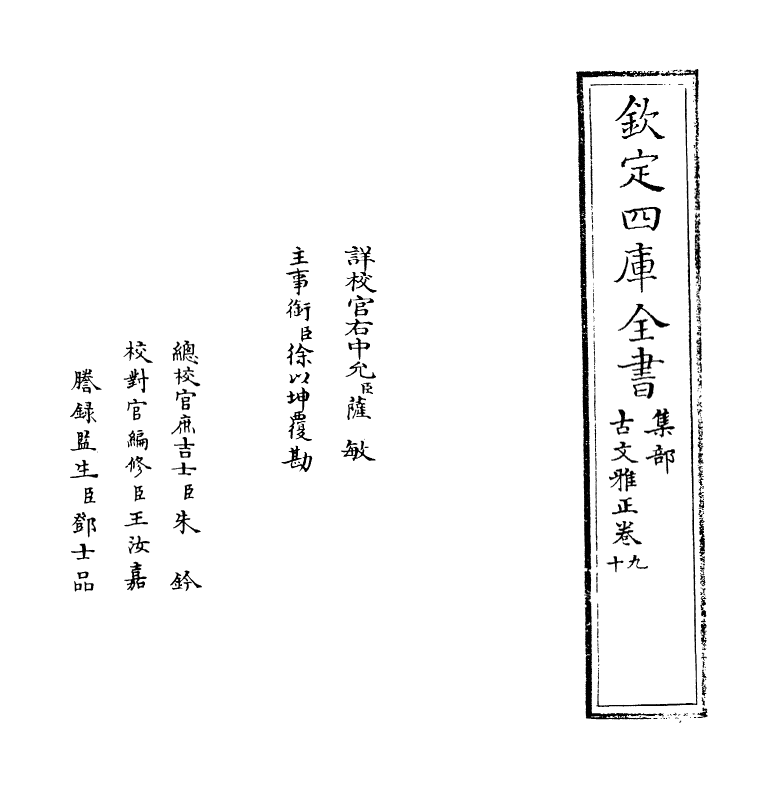 欽定四庫全書
集部
古文雅正卷九
十
詳校官右中允臣薩敏
主事銜臣徐以坤覆勘
總校官庶吉士臣朱鈐
校對官編修臣王汝嘉
謄録監生臣鄧士品